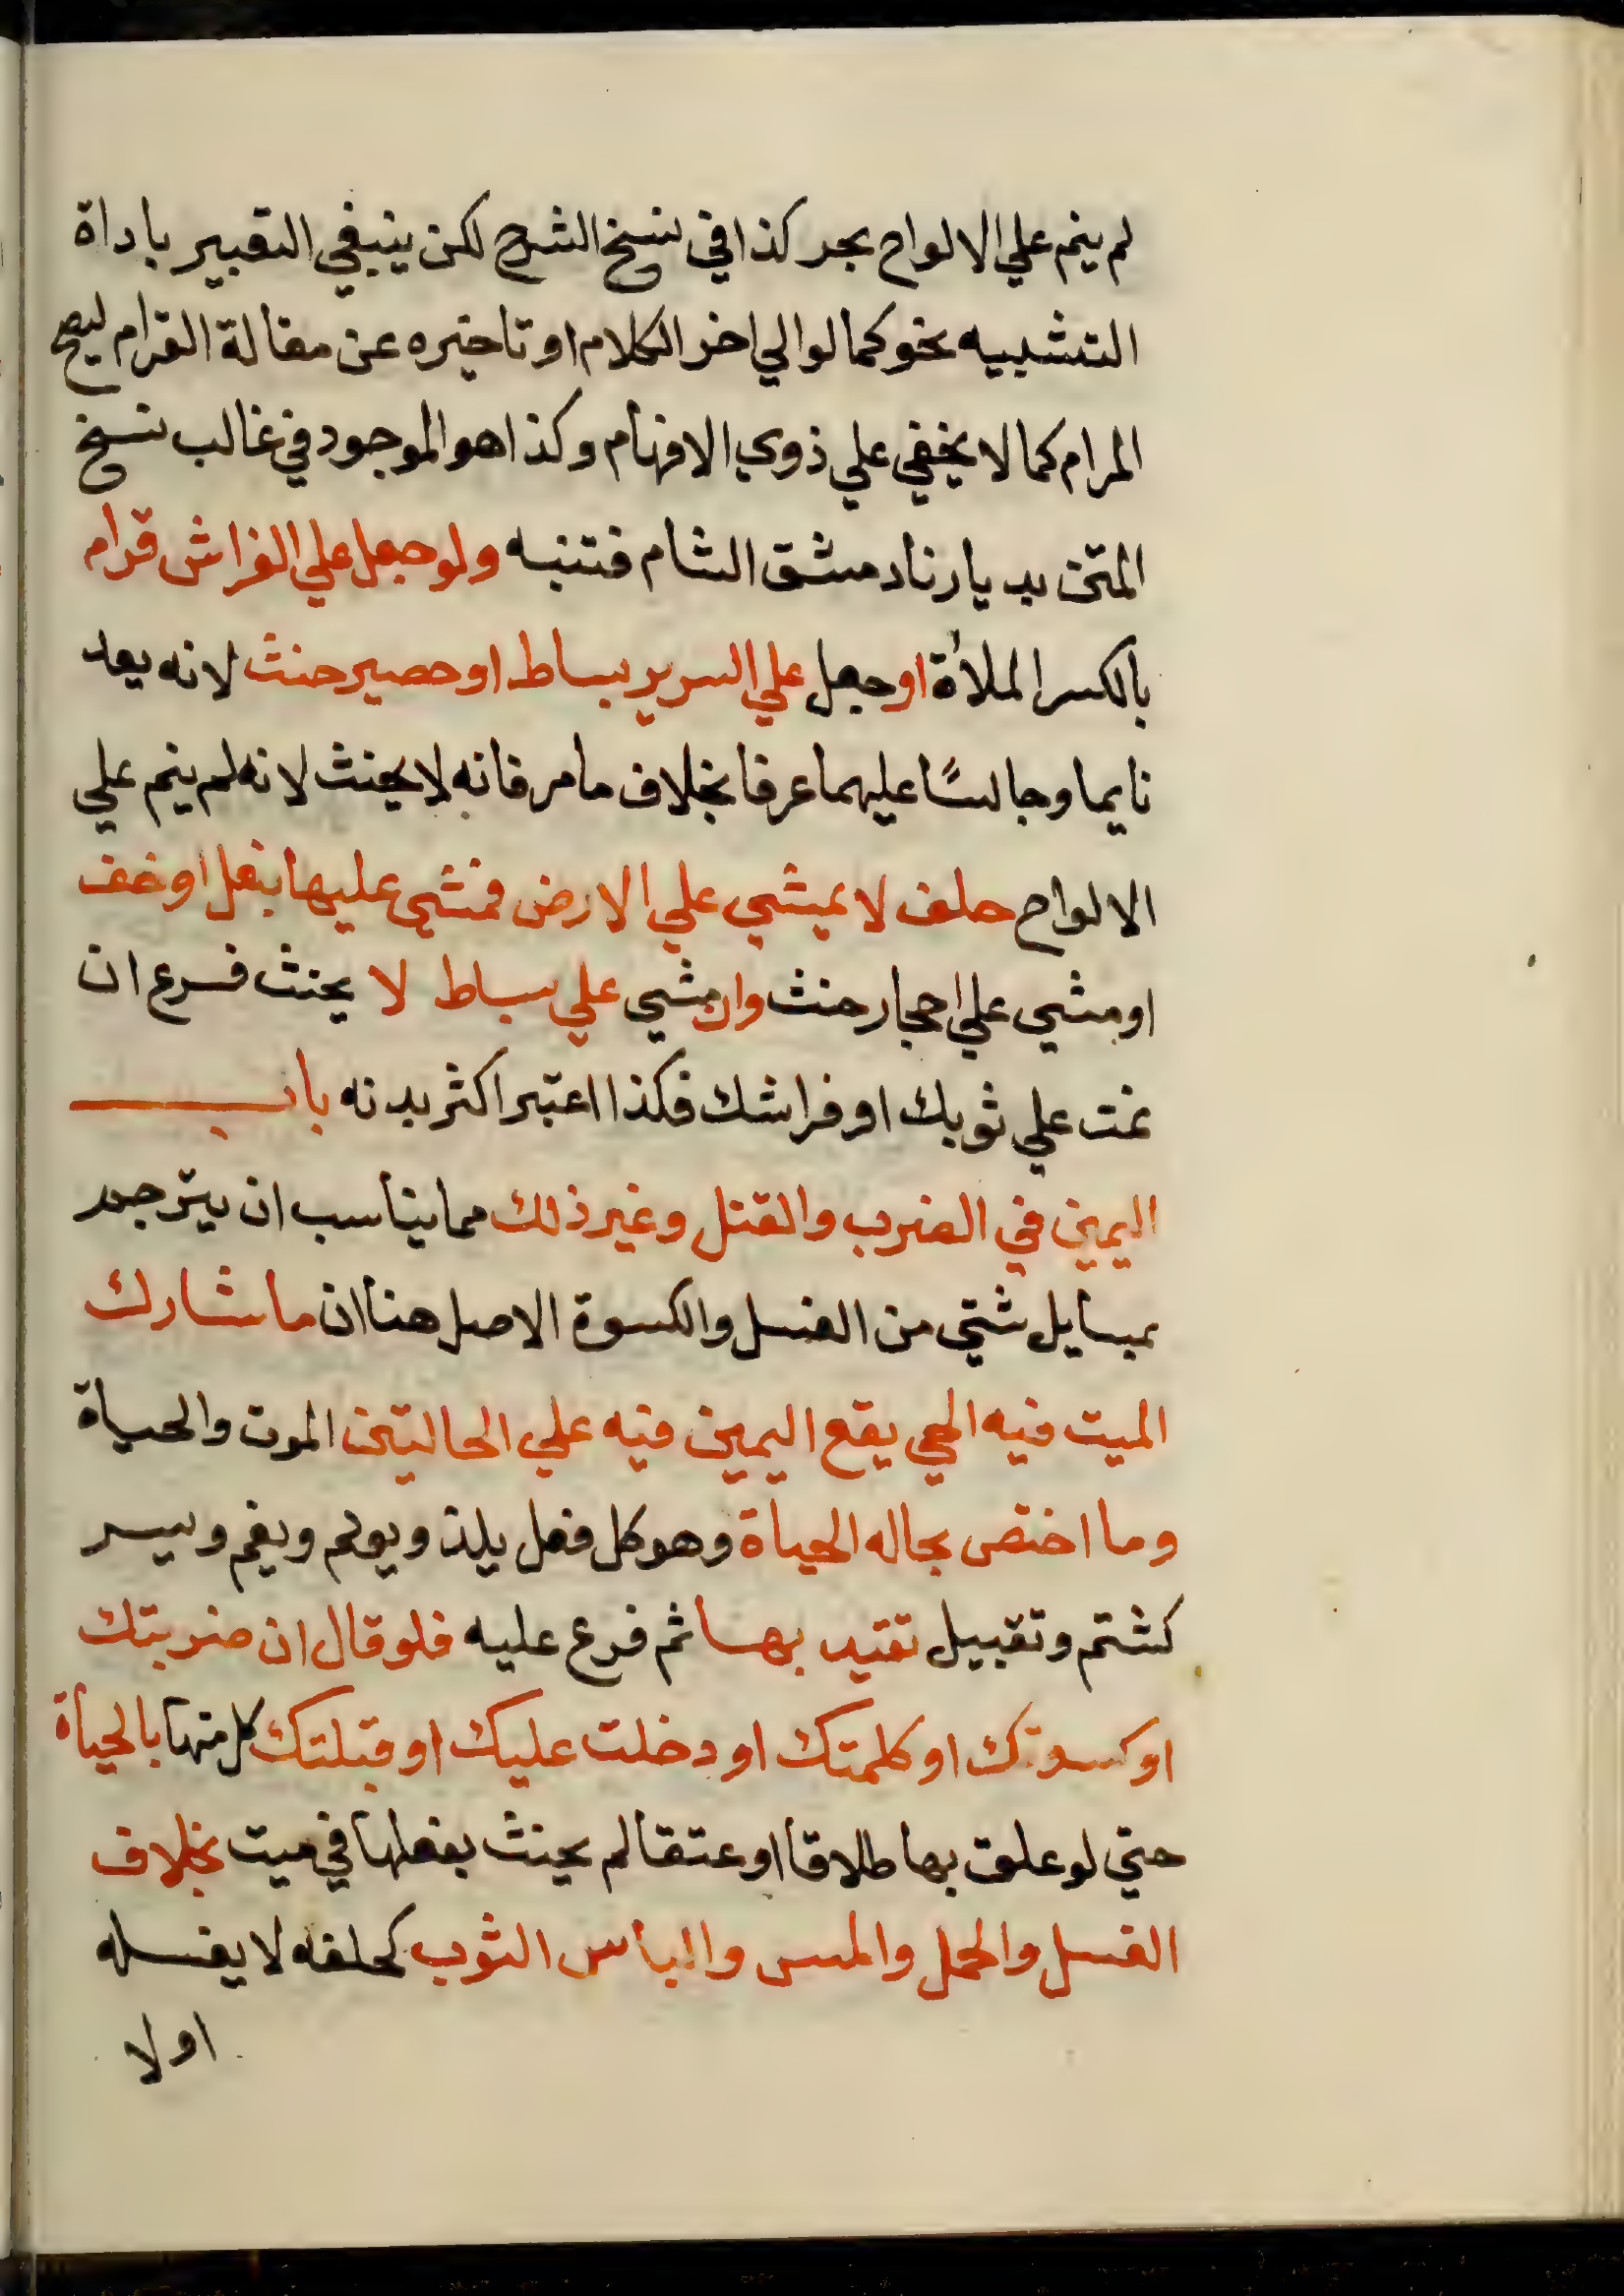 لم ينم علي الالواح بحر كذا في نسخ الشرح لكن ينبغي التعبير باداة
التشبيه نحو كما لو الي اخر الكلام او تاخيره عن مقالة القرام ليصح
المرام كما لا يخفي علي ذوي الافهام وكذا هو الموجود في غالب نسخ
المتن بديارنا دمشق الشام فتنبه ولو جعل علي الفراش قرام
بالكسر الملأة او جعل علي السرير بساط او حصير حنث لانه يعد
نايما وجالسًا عليهما عرفا بخلاف ما مر فانه لا يحنث لانه لم ينم علي
الالواح حلف لا يمشي علي الارض فمشي عليها بنعل او خف
او مشي علي احجار حنث وان مشي علي بساط لا يحنث فرع ان
نمت علي ثوبك او فراشك فكذا اعتبر اكثر بدنه باب
اليمين في الضرب والقتل وغير ذلك مما يناسب ان يترجم
بمسايل شتي من الغسل والكسوة الاصل هنا ان ما شارك
الميت فيه الحي يقع اليمين فيه علي الحالتين الموت والحياة
وما اختص بحاله الحياة وهو كل فعل يلذ ويولم ويغم ويسر
كشتم وتقبيل تقيد بها ثم فرع عليه فلو قال ان ضربتك
او كسوتك او كلمتك او دخلت عليك او قبلتك كل منها بالحياة
حتي لو علق بها طلاقا او عتقا لم يحنث بفعلها في ميت بخلاف
الغسل والحمل والمس والباس الثوب كحلفه لا يغسله
او لا